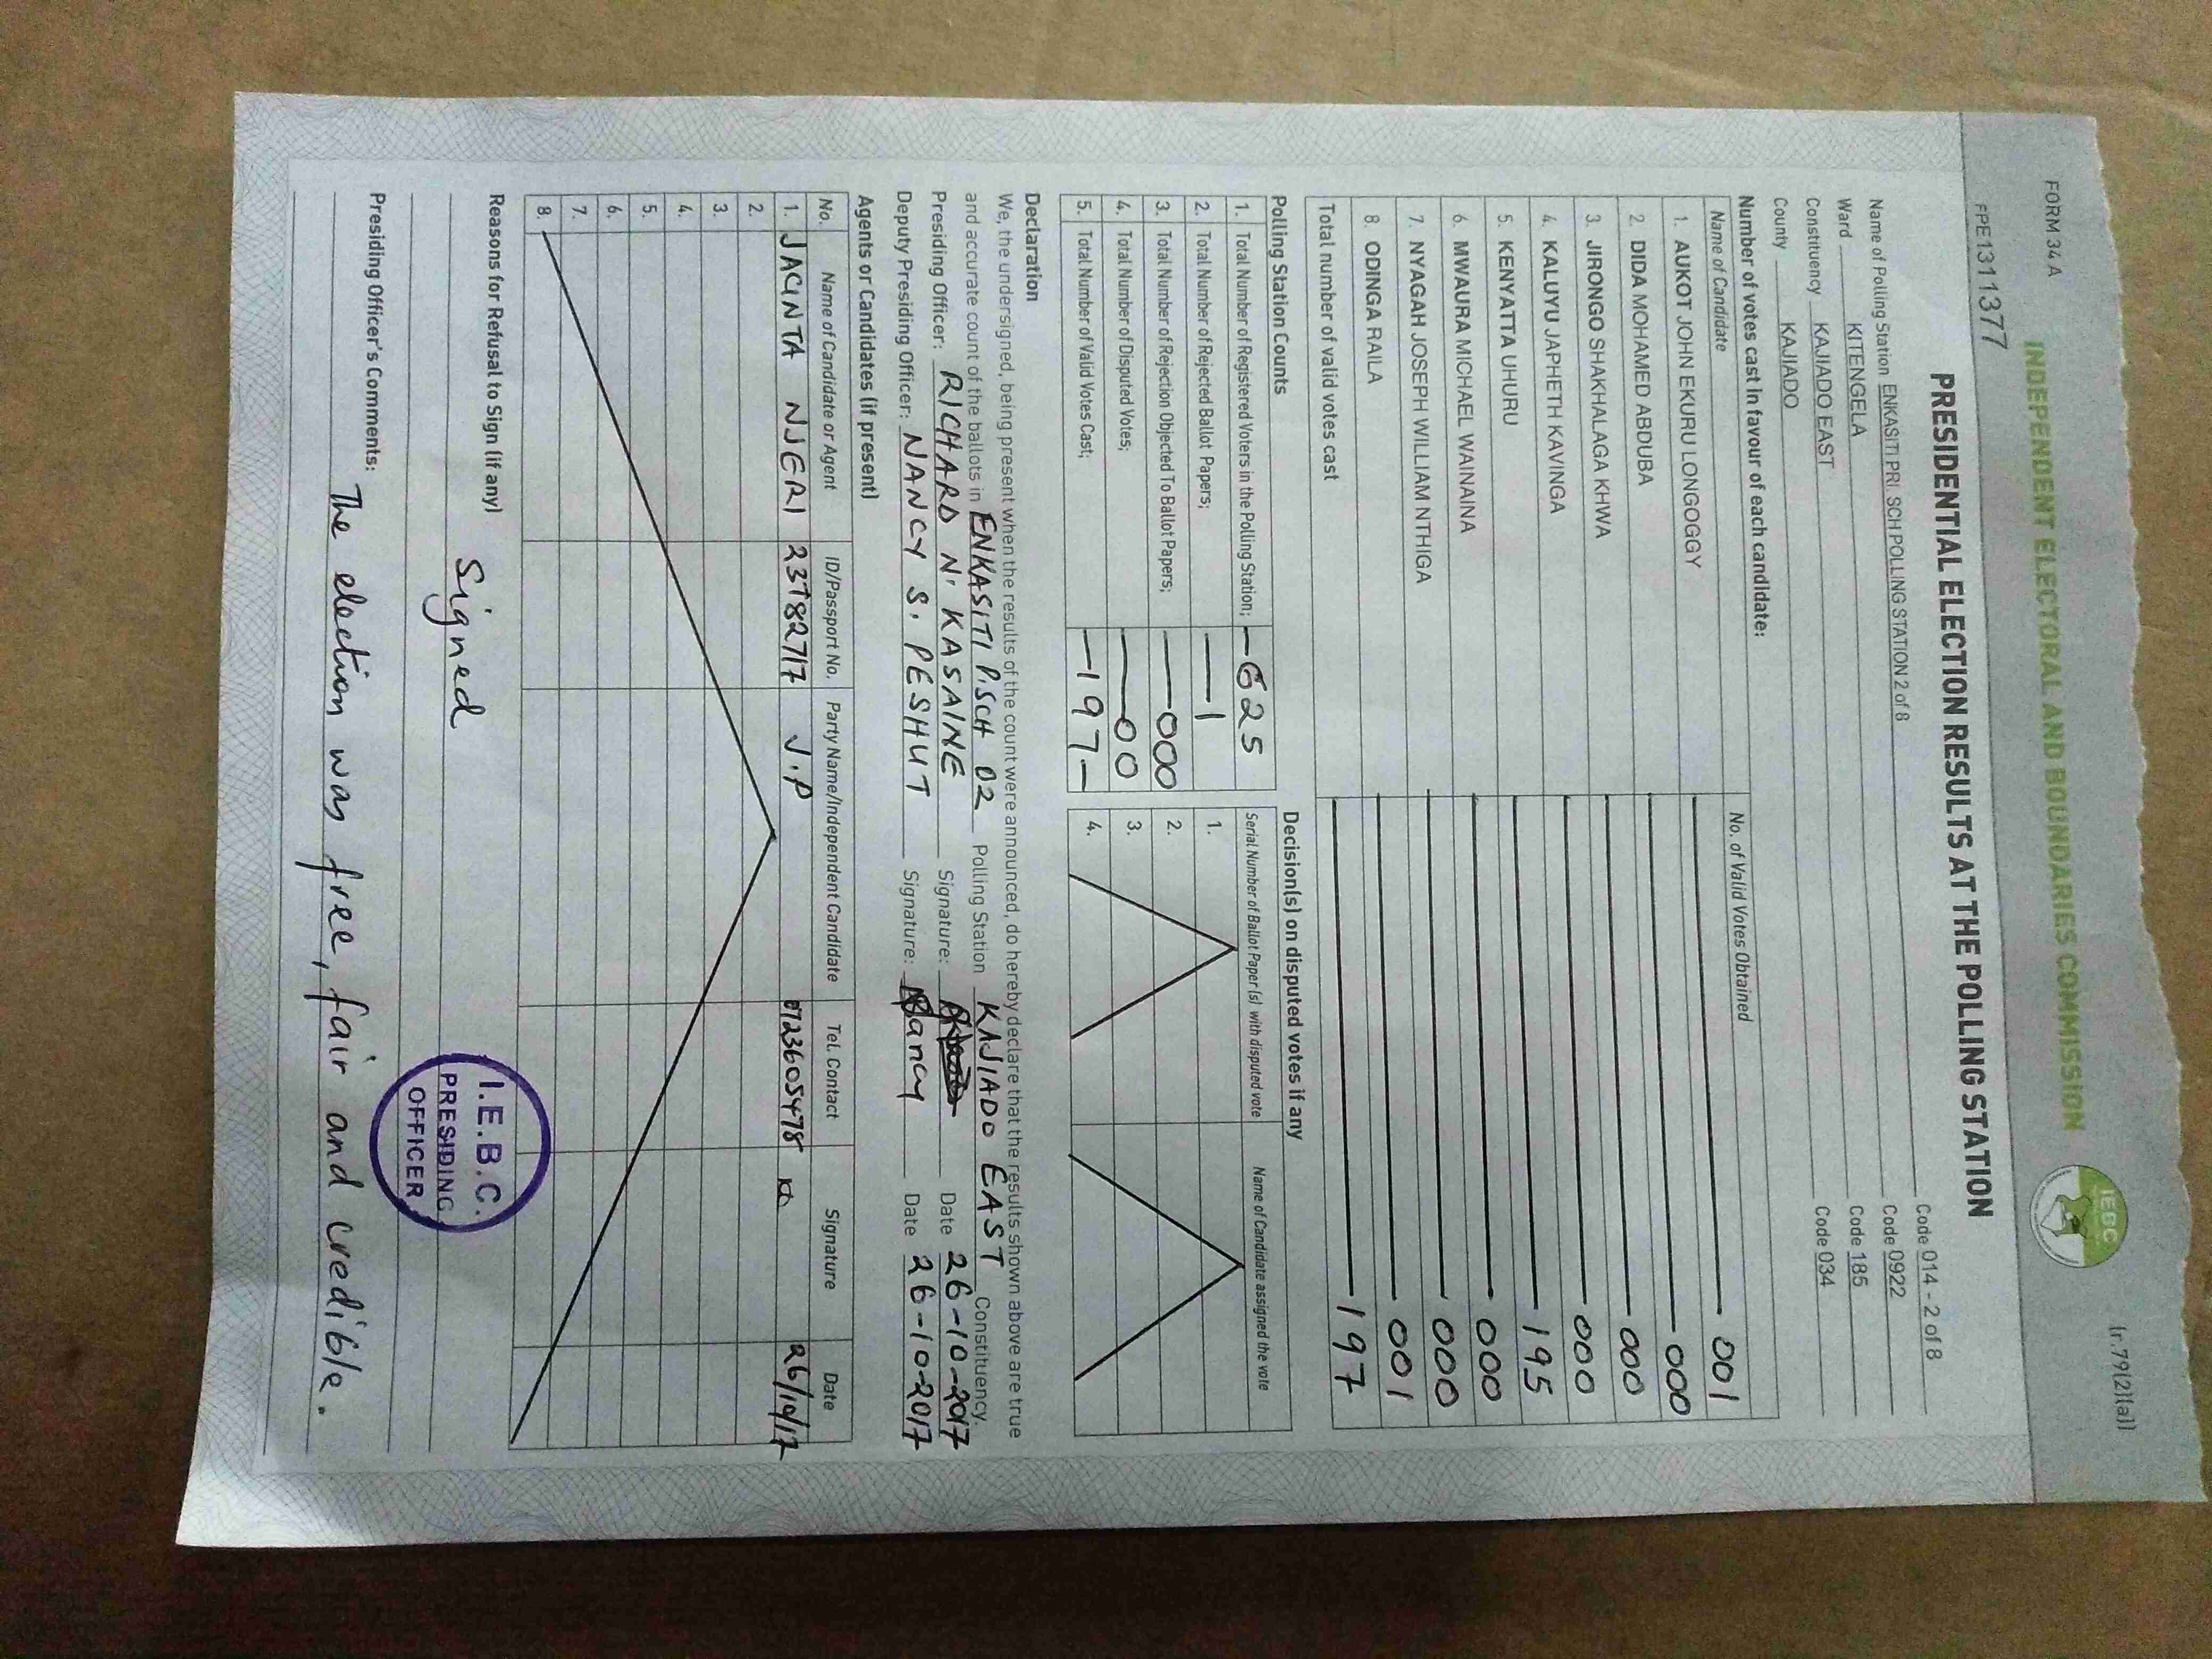 FORM 34 A
(r.79(2)(a))
INDEPENDENT ELECTORAL AND BOUNDARIES COMMISSION
IEBC
FPE1311377
PRESIDENTIAL ELECTION RESULTS AT THE POLLING STATION
Name of Polling Station ENKASITI PRI. SCH POLLING STATION 2 of 8 Code 014 - 2 of 8
Ward KITENGELA Code 0922
Constituency KAJIADO EAST Code 185
County KAJIADO Code 034
Number of votes cast in favour of each candidate:
Name of Candidate No. of Valid Votes Obtained
1. AUKOT JOHN EKURU LONGOGGY 001
2. DIDA MOHAMED ABDUBA 000
3. JIRONGO SHAKHALAGA KHWA 000
4. KALUYU JAPHETH KAVINGA 000
5. KENYATTA UHURU 195
6. MWAURA MICHAEL WAINAINA 000
7. NYAGAH JOSEPH WILLIAM NTHIGA 000
8. ODINGA RAILA 001
Total number of valid votes cast 197
Polling Station Counts
1. Total Number of Registered Voters in the Polling Station; 625
2. Total Number of Rejected Ballot Papers; 1
3. Total Number of Rejection Objected To Ballot Papers; 000
4. Total Number of Disputed Votes; 00
5. Total Number of Valid Votes Cast; 197
Decision(s) on disputed votes if any
Serial Number of Ballot Paper (s) with disputed vote Name of Candidate assigned the vote
1.
2.
3.
4.
Declaration
We, the undersigned, being present when the results of the count were announced, do hereby declare that the results shown above are true
and accurate count of the ballots in ENKASITI P.SCH 02 Polling Station KAJIADO EAST Constituency.
Presiding Officer: RICHARD N. KASAINE Signature: Date 26-10-2017
Deputy Presiding Officer: NANCY S. PESHUT Signature: Nancy Date 26-10-2017
Agents or Candidates (if present)
No. Name of Candidate or Agent ID/Passport No. Party Name/Independent Candidate Tel. Contact Signature Date
1. JACINTA NJERI 23782717 J.P 0723605478 26/10/17
2.
3.
4.
5.
6.
7.
8.
Reasons for Refusal to Sign (if any)
Signed
I.E.B.C.
PRESIDING
OFFICER
Presiding Officer's Comments:
The election was free, fair and credible.